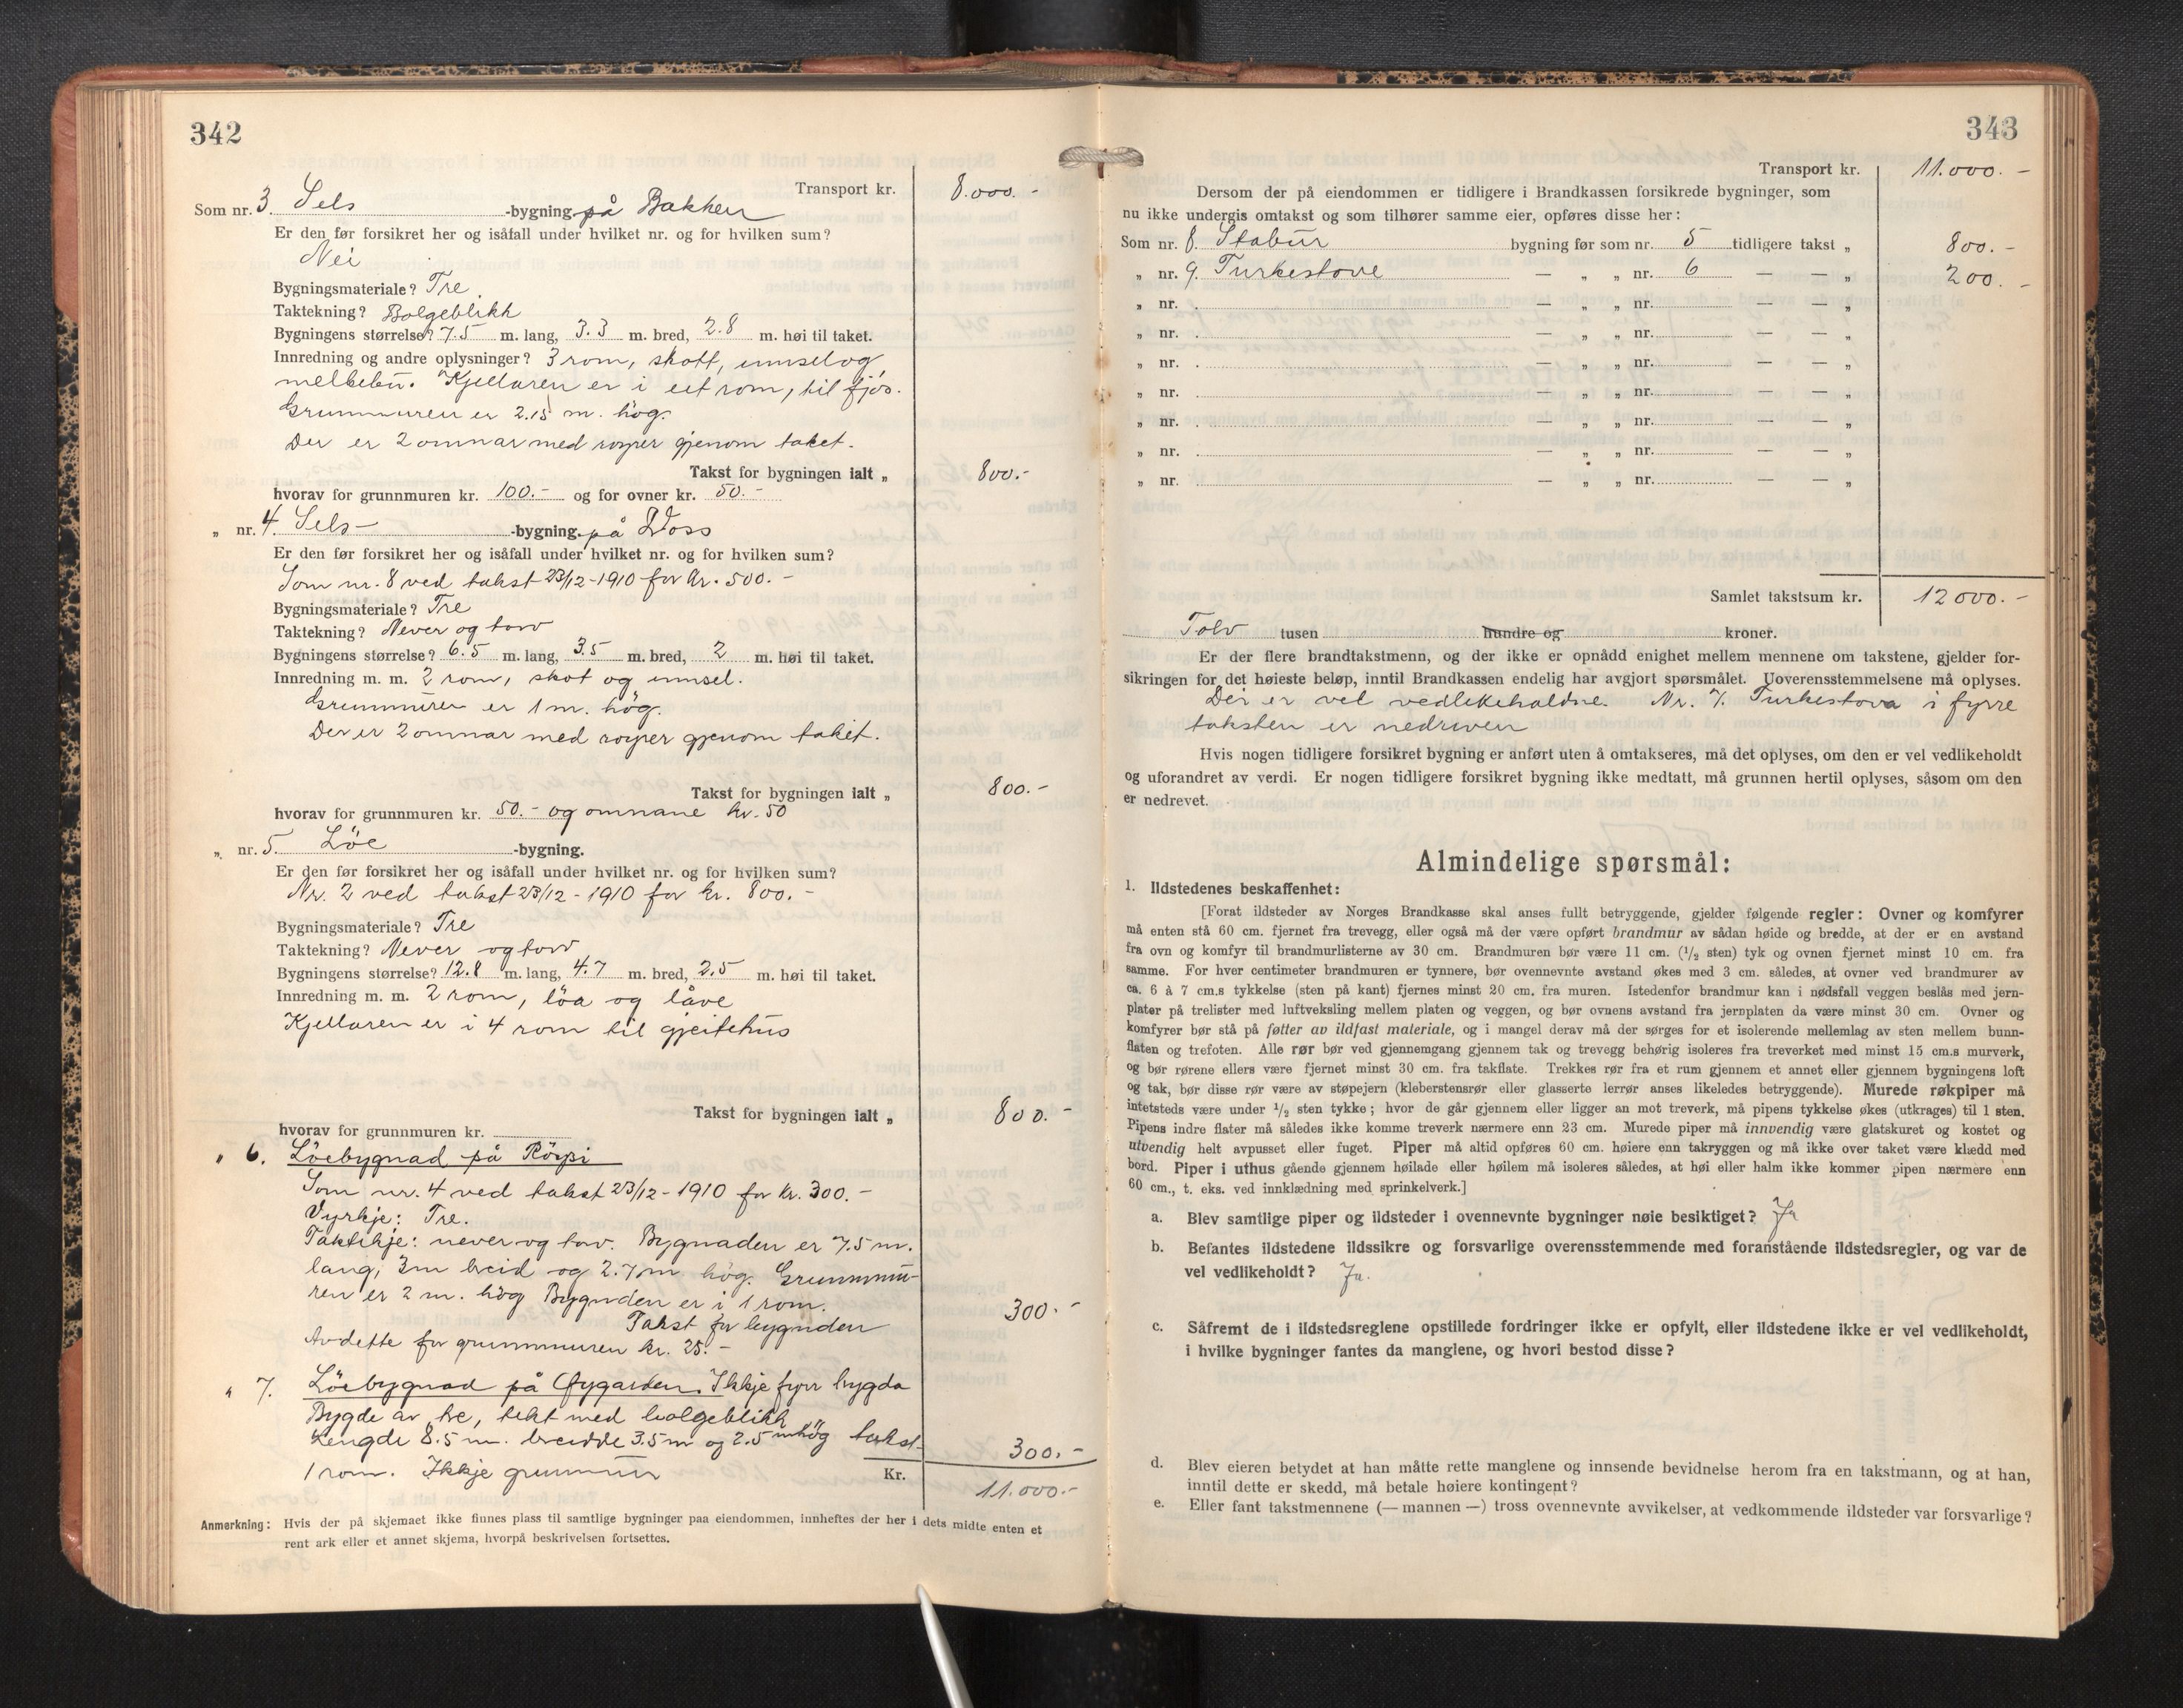 342
Transport kr. 8.000.-
Som nr. 3. Sels -bygning på Bakken
Er den før forsikret her og isåfall under hvilket nr. og for hvilken sum?
Nei
Bygningsmateriale? Tre
Taktekning? Bølgeblikk
Bygningens størrelse? 7.5 m. lang, 3.3 m. bred, 2.8 m. høi til taket.
Innredning og andre oplysninger? 3 rom, skott, innsel og
melkebu. Kjellaren er i eit rom, til fjös.
Grunnmuren er 2.15 m. høg.
Der er 2 omnar med royrer gjenom taket.
Takst for bygningen ialt „ 800.-
hvorav for grunnmuren kr. 100.- og for ovner kr. 50.-
„ nr. 4. Sels- -bygning på Voss
Er den før forsikret her og isåfall under hvilket nr. og for hvilken sum?
Som nr. 8 ved takst 23/12-1910 for kr. 500.-
Bygningsmateriale? Tre
Taktekning? Never og torv
Bygningens størrelse? 6.5 m. lang, 3.5 m. bred, 2 m. høi til taket.
Innredning m. m. 2 rom, skot og innsel.
Grunnmuren er 1 m. høg.
Der er 2 omnar med royrer gjenom taket.
Takst for bygningen ialt „ 800.-
hvorav for grunnmuren kr. 50.- og omnane kr. 50
„ nr. 5. Löe -bygning.
Er den før forsikret her og isåfall under hvilket nr. og for hvilken sum?
Nr. 2 ved takst 23/12-1910 for kr. 800.-
Bygningsmateriale? Tre
Taktekning? Never og torv
Bygningens størrelse? 12.8 m. lang, 4.7 m. bred, 2.5 m. høi til taket.
Innredning m. m. 2 rom, löa og låve
Kjellaren er i 4 rom til gjeitehus
Takst for bygningen ialt „ 800.-
hvorav for grunnmuren kr.
„ 6. Löebygnad på Röysi
Som nr. 4 ved takst 23/12-1910 for kr. 300.-
Vyrkje: Tre.
Taktekje: never og torv. Bygnaden er 7.5 m.
lang, 3m breid og 2.7m høg. Grunnmu-
ren er 2 m. høg Bygnden er i 1 rom.
Takst for bygnden 300.-
Av dette for grunnmuren kr. 25.-
„ 7. Löebygnad på Øygarden. Ikkje fyrr bygda
Bygde av tre, tekt med bölgeblikk
Lengde 8.5 m. breidde 3.5 m og 2.5 m høg takst 300.-
1 rom. Ikkje grunnmur
Kr. 11.000.-
Anmerkning: Hvis der på skjemaet ikke finnes plass til samtlige bygninger paa eiendommen, innheftes der her i dets midte enten et
rent ark eller et annet skjema, hvorpå beskrivelsen fortsettes.
343
Transport kr. 11.000.-
Dersom der på eiendommen er tidligere i Brandkassen forsikrede bygninger, som
nu ikke undergis omtakst og som tilhører samme eier, opføres disse her:
Som nr. 8. Stabur bygning før som nr. 5 tidligere takst „ 800.-
„ nr. 9. Turkestove — „ „ nr. 6 — — „ 200.-
„ nr. — „ „ nr. — — „
„ nr. — „ „ nr. — — „
„ nr. — „ „ nr. — — „
„ nr. — „ „ nr. — — „
„ nr. — „ „ nr. — — „
„ nr. — „ „ nr. — — „
„ nr. — „ „ nr. — — „
Samlet takstsum kr. 12000.-
Tolv tusen hundre og kroner.
Er der flere brandtakstmenn, og der ikke er opnådd enighet mellem mennene om takstene, gjelder for-
sikringen for det høieste beløp, inntil Brandkassen endelig har avgjort spørsmålet. Uoverensstemmelsene må oplyses.
Dei er vel vedlikehaldne. Nr. 7. Turkestova i fyrre
taksten er nedriven
Hvis nogen tidligere forsikret bygning er anført uten å omtakseres, må det oplyses, om den er vel vedlikeholdt
og uforandret av verdi. Er nogen tidligere forsikret bygning ikke medtatt, må grunnen hertil oplyses, såsom om den
er nedrevet.
Almindelige spørsmål:
1. Ildstedenes beskaffenhet:
[Forat ildsteder av Norges Brandkasse skal anses fullt betryggende, gjelder følgende regler: Ovner og komfyrer
må enten stå 60 cm. fjernet fra trevegg, eller også må der være opført brandmur av sådan høide og bredde, at der er en avstand
fra ovn og komfyr til brandmurlisterne av 30 cm. Brandmuren bør være 11 cm. (1/2 sten) tyk og ovnen fjernet minst 10 cm. fra
samme. For hver centimeter brandmuren er tynnere, bør ovennevnte avstand økes med 3 cm. således, at ovner ved brandmurer av
ca. 6 à 7 cm.s tykkelse (sten på kant) fjernes minst 20 cm. fra muren. Istedenfor brandmur kan i nødsfall veggen beslås med jern-
plater på trelister med luftveksling mellem platen og veggen, og bør ovnens avstand fra jernplaten da være minst 30 cm. Ovner og
komfyrer bør stå på føtter av ildfast materiale, og i mangel derav må der sørges for et isolerende mellemlag av sten mellem bunn-
flaten og trefoten. Alle rør bør ved gjennemgang gjennem tak og trevegg behørig isoleres fra treverket med minst 15 cm.s murverk,
og bør rørene ellers være fjernet minst 30 cm. fra takflate. Trekkes rør fra et rum gjennem et annet eller gjennem bygningens loft
og tak, bør disse rør være av støpejern (kleberstensrør eller glasserte lerrør anses likeledes betryggende). Murede røkpiper må
intetsteds være under 1/2 sten tykke; hvor de går gjennem eller ligger an mot treverk, må pipens tykkelse økes (utkrages) til 1 sten.
Pipens indre flater må således ikke komme treverk nærmere enn 23 cm. Murede piper må innvendig være glatskuret og kostet og
utvendig helt avpusset eller fuget. Piper må altid opføres 60 cm. høiere enn takryggen og må ikke over taket være klædd med
bord. Piper i uthus gående gjennem høilade eller høilem må isoleres således, at høi eller halm ikke kommer pipen nærmere enn
60 cm., t. eks. ved innklædning med sprinkelverk.]
a. Blev samtlige piper og ildsteder i ovennevnte bygninger nøie besiktiget? Ja
b. Befantes ildstedene ildssikre og forsvarlige overensstemmende med foranstående ildstedsregler, og var de
vel vedlikeholdt? Ja.
c. Såfremt de i ildstedsreglene opstillede fordringer ikke er opfylt, eller ildstedene ikke er vel vedlikeholdt,
i hvilke bygninger fantes da manglene, og hvori bestod disse?
d. Blev eieren betydet at han måtte rette manglene og innsende bevidnelse herom fra en takstmann, og at han,
inntil dette er skedd, må betale høiere kontingent?
e. Eller fant takstmennene (— mannen —) tross ovennevnte avvikelser, at vedkommende ildsteder var forsvarlige?